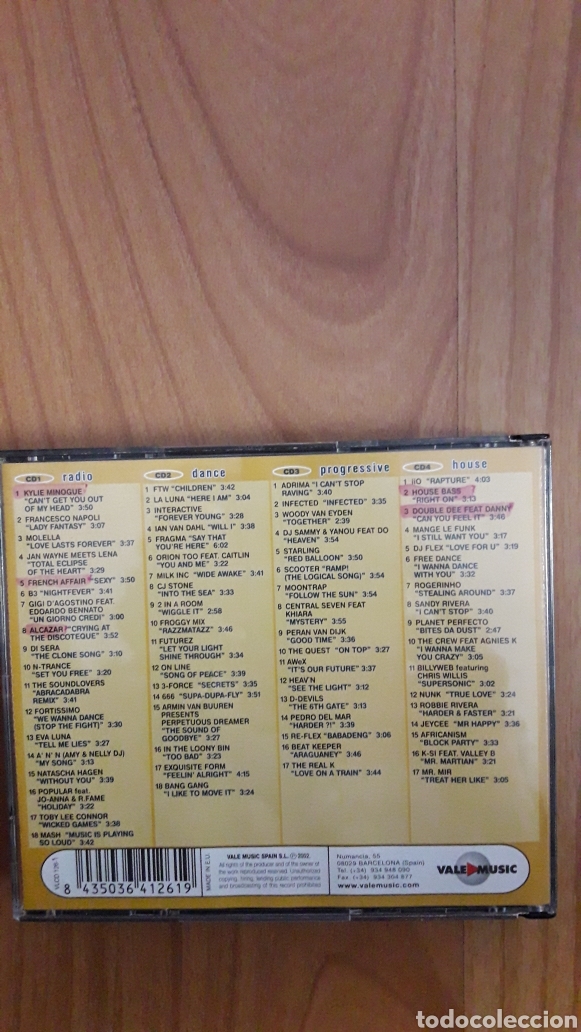 CD1 radio
1 KYLIE MINOGUE
"CAN'T GET YOU OUT
OF MY HEAD" 3:50
2 FRANCESCO NAPOLI
"LADY FANTASY" 3:07
3 MOLELLA
"LOVE LASTS FOREVER" 3:37
4 JAN WAYNE MEETS LENA
"TOTAL ECLIPSE
OF THE HEART" 3:29
5 FRENCH AFFAIR "SEXY" 3:50
6 B3 "NIGHTFEVER" 3:41
7 GIGI D'AGOSTINO FEAT.
EDOARDO BENNATO
"UN GIORNO CREDI" 3:00
8 ALCAZAR "CRYING AT
THE DISCOTEQUE" 3:52
9 DI SERA
"THE CLONE SONG" 3:10
10 N-TRANCE
"SET YOU FREE" 3:20
11 THE SOUNDLOVERS
"ABRACADABRA
REMIX" 3:41
12 FORTISSIMO
"WE WANNA DANCE
(STOP THE FIGHT)" 3:30
13 EVA LUNA
"TELL ME LIES" 3:27
14 A' N' N (AMY & NELLY DJ)
"MY SONG" 3:13
15 NATASCHA HAGEN
"WITHOUT YOU" 3:39
16 POPULAR feat.
JO-ANNA & R.FAME
"HOLIDAY" 3:22
17 TOBY LEE CONNOR
"WICKED GAMES" 3:38
18 MASH "MUSIC IS PLAYING
SO LOUD" 3:42
CD2 dance
1 FTW "CHILDREN" 3:42
2 LA LUNA "HERE I AM" 3:04
3 INTERACTIVE
"FOREVER YOUNG" 3:28
4 IAN VAN DAHL "WILL I" 3:38
5 FRAGMA "SAY THAT
YOU'RE HERE" 6:02
6 ORION TOO FEAT. CAITLIN
"YOU AND ME" 3:22
7 MILK INC "WIDE AWAKE" 3:41
8 CJ STONE
"INTO THE SEA" 3:33
9 2 IN A ROOM
"WIGGLE IT" 2:58
10 FROGGY MIX
"RAZZMATAZZ" 3:46
11 FUTUREZ
"LET YOUR LIGHT
SHINE THROUGH" 3:34
12 ON LINE
"SONG OF PEACE" 3:49
13 3-FORCE "SECRETS" 3:35
14 666 "SUPA-DUPA-FLY" 3:51
15 ARMIN VAN BUUREN
PRESENTS
PERPETUOUS DREAMER
"THE SOUND OF
GOODBYE" 3:27
16 IN THE LOONY BIN
"TOO BAD" 3:23
17 EXQUISITE FORM
"FEELIN' ALRIGHT" 4:15
18 BANG GANG
"I LIKE TO MOVE IT" 3:24
CD3 progressive
1 ADRIMA "I CAN'T STOP
RAVING" 3:40
2 INFECTED "INFECTED" 3:35
3 WOODY VAN EYDEN
"TOGETHER" 2:39
4 DJ SAMMY & YANOU FEAT DO
"HEAVEN" 3:54
5 STARLING
"RED BALLOON" 3:50
6 SCOOTER "RAMP!
(THE LOGICAL SONG)" 3:54
7 MOONTRAP
"FOLLOW THE SUN" 3:54
8 CENTRAL SEVEN FEAT
KHIARA
"MYSTERY" 3:55
9 PERAN VAN DIJK
"GOOD TIME" 3:36
10 THE QUEST "ON TOP" 3:27
11 AWeX
"IT'S OUR FUTURE" 3:37
12 HEAV'N
"SEE THE LIGHT" 3:12
13 D-DEVILS
"THE 6TH GATE" 3:13
14 PEDRO DEL MAR
"HARDER ?!" 3:39
15 RE-FLEX "BABADENG" 3:06
16 BEAT KEEPER
"ARAGUANEY" 3:46
17 THE REAL K
"LOVE ON A TRAIN" 3:44
CD4 house
1 IIO "RAPTURE" 4:03
2 HOUSE BASS
"RIGHT ON" 3:13
3 DOUBLE DEE FEAT DANNY
"CAN YOU FEEL IT" 3:46
4 MANGE LE FUNK
"I STILL WANT YOU" 3:17
5 DJ FLEX "LOVE FOR U" 3:19
6 FREE DANCE
"I WANNA DANCE
WITH YOU" 3:32
7 ROGERINHO
"STEALING AROUND" 3:37
8 SANDY RIVERA
"I CAN'T STOP" 3:40
9 PLANET PERFECTO
"BITES DA DUST" 3:47
10 THE CREW FEAT AGNIES K
"I WANNA MAKE
YOU CRAZY" 3:05
11 BILLYWEB featuring
CHRIS WILLIS
"SUPERSONIC" 3:02
12 NUNK "TRUE LOVE" 3:24
13 ROBBIE RIVERA
"HARDER & FASTER" 3:21
14 JEYCEE "MR HAPPY" 3:36
15 AFRICANISM
"BLOCK PARTY" 3:33
16 K-SI FEAT. VALLEY B
"MR. MARTIAN" 3:21
17 MR. MIR
"TREAT HER LIKE" 3:05
VLCD 126-1
8 435036 412619
MADE IN E.U.
VALE MUSIC SPAIN S.L. ℗ © 2002.
All rights of the producer and of the owner of
the work reproduced reserved. Unauthorized
copying, hiring, lending, public performance
and broadcasting of this record prohibited.
Numancia, 55
08029 BARCELONA (Spain)
Tel. (+34) 934 948 090
Fax. (+34) 934 304 877
www.valemusic.com
VALE MUSIC
todocoleccion